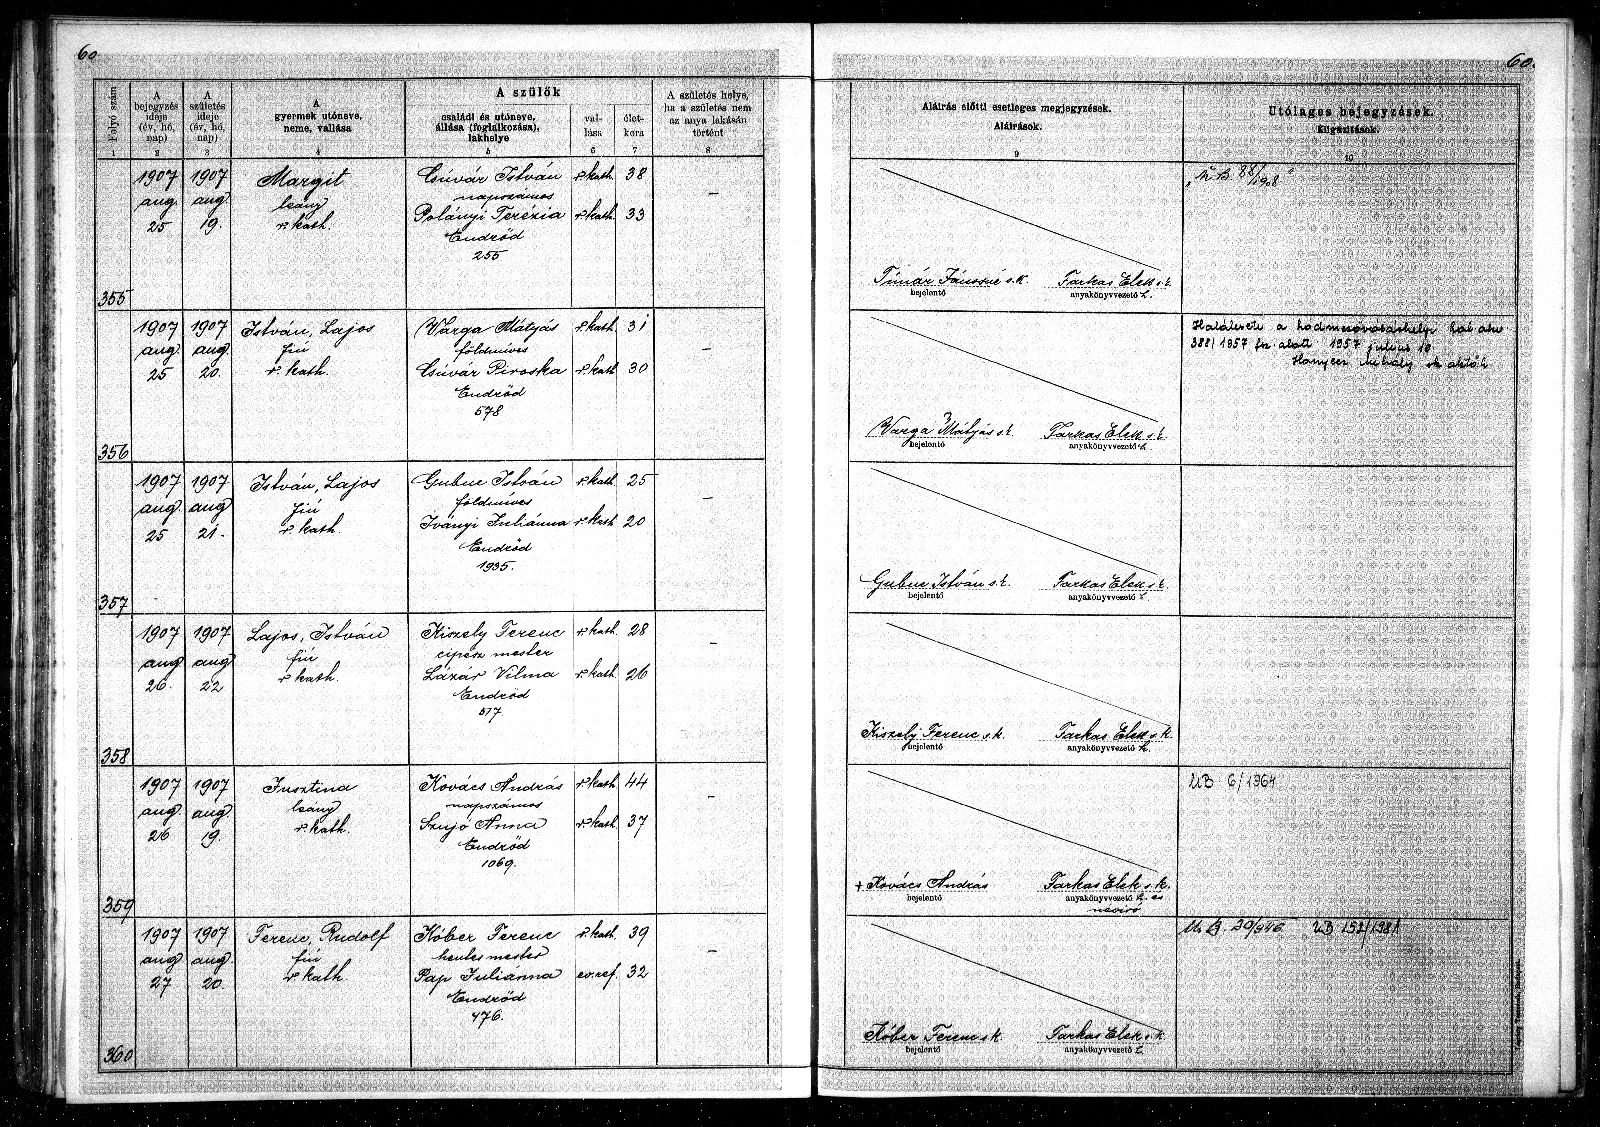 60
60.
Folyó szám
A bejegyzés ideje (év, hó, nap)
A születés ideje (év, hó, nap)
A gyermek utóneve, neme, vallása
A szülők
családi és utóneve, állása (foglalkozása), lakhelye
vallása
életkora
A születés helye, ha a születés nem az anya lakásán történt
Aláírás előtti esetleges megjegyzések.
Aláírások.
Utólagos bejegyzések.
Kiigazítások.
1 2 3 4 5 6 7 8 9 10
355
1907 aug. 25
1907 aug. 19.
Margit
leány
r. kath.
Csúvár István r. kath. 38
napszámos
Polányi Terézia r. kath. 33
Endrőd
255
–
Tímár Jánosné s.k. Farkas Elek s.k.
bejelentő anyakönyvvezető h.
"U.B. 88/1908"
356
1907 aug. 25
1907 aug. 20.
István, Lajos
fiú
r. kath.
Varga Mátyás r. kath. 31
földmíves
Csúvár Piroska r. kath. 30
Endrőd
578
–
Varga Mátyás s.k. Farkas Elek s.k.
bejelentő anyakönyvvezető h.
Halálesete a hódmezővásárhelyi hal. akv.
388/1957 fsz. alatt 1957 július 16
Mihály
357
1907 aug. 25
1907 aug. 21.
István, Lajos
fiú
r. kath.
Gubuc István r. kath. 25
földmíves
Iványi Juliánna r. kath. 20
Endrőd
1935.
–
Gubuc István s.k. Farkas Elek s.k.
bejelentő anyakönyvvezető h.
358
1907 aug. 26.
1907 aug. 22
Lajos, István
fiú
r. kath.
Kiszely Ferenc r. kath. 28
cipész mester
Lázár Vilma r. kath. 26
Endrőd
517.
–
Kiszely Ferenc s.k. Farkas Elek s.k.
bejelentő anyakönyvvezető h.
359
1907 aug. 26
1907 aug. 19.
Jusztina
leány
r. kath.
Kovács András r. kath. 44
napszámos
Szujó Anna r. kath. 37
Endrőd
1069.
–
+ Kovács András Farkas Elek s.k.
bejelentő anyakönyvvezető h. és
névíró
UB 6/1964
360
1907 aug. 27
1907 aug. 20.
Ferenc, Rudolf
fiú
r. kath.
Kóber Ferenc r. kath. 39
hentesmester
Pap Julianna ev. ref. 32
Endrőd
476.
Kóber Ferenc s.k. Farkas Elek s.k.
bejelentő anyakönyvvezető h.
U.B. 39/946 UB 152/1981